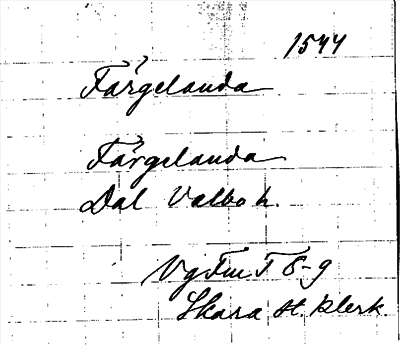 1544
Färgelanda
Färgelanda
Dal Valbo h.
VgFmT 8-9
Skara st. klerk.